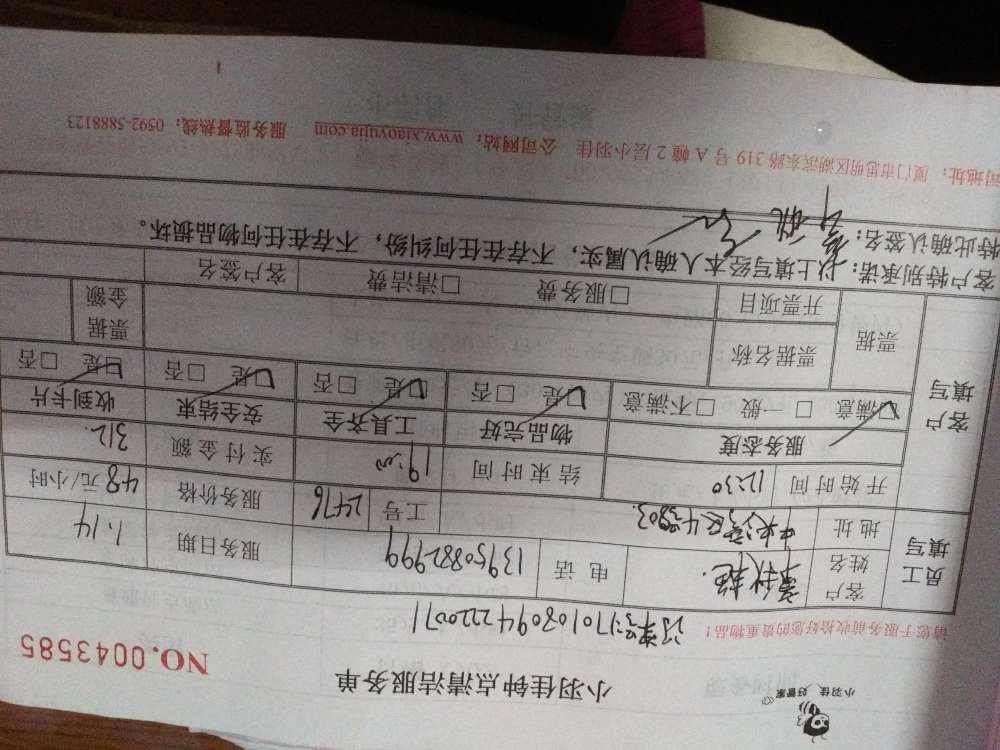 小羽佳 好管家
小羽佳钟点清洁服务单
NO.0043585
请您于服务前收拾好您的贵重物品!
订单号:1701080944222007 1
员工填写
客户姓名 电话 13950882999 服务日期 1.14
地址 工号 2476 服务价格 48元/小时
开始时间 12:30 结束时间 19:00 实付金额 312.
客户填写
服务态度 物品完好 工具齐全 安全结束 收到卡片
☑满意 □一般 □不满意 ☑是 □否 ☑是 □否 ☑是 □否 ☑是 □否
票据 票据名称 票据金额
开票项目 □服务费 □清洁费 客户签名
客户特别承诺:以上填写经本人确认属实,不存在任何纠纷,不存在任何物品损坏。
特此确认签名:
司地址:厦门市思明区湖滨东路 319 号 A 幢 2 层小羽佳 公司网站:www.xiaoyujia.com 服务监督热线:0592-5888123